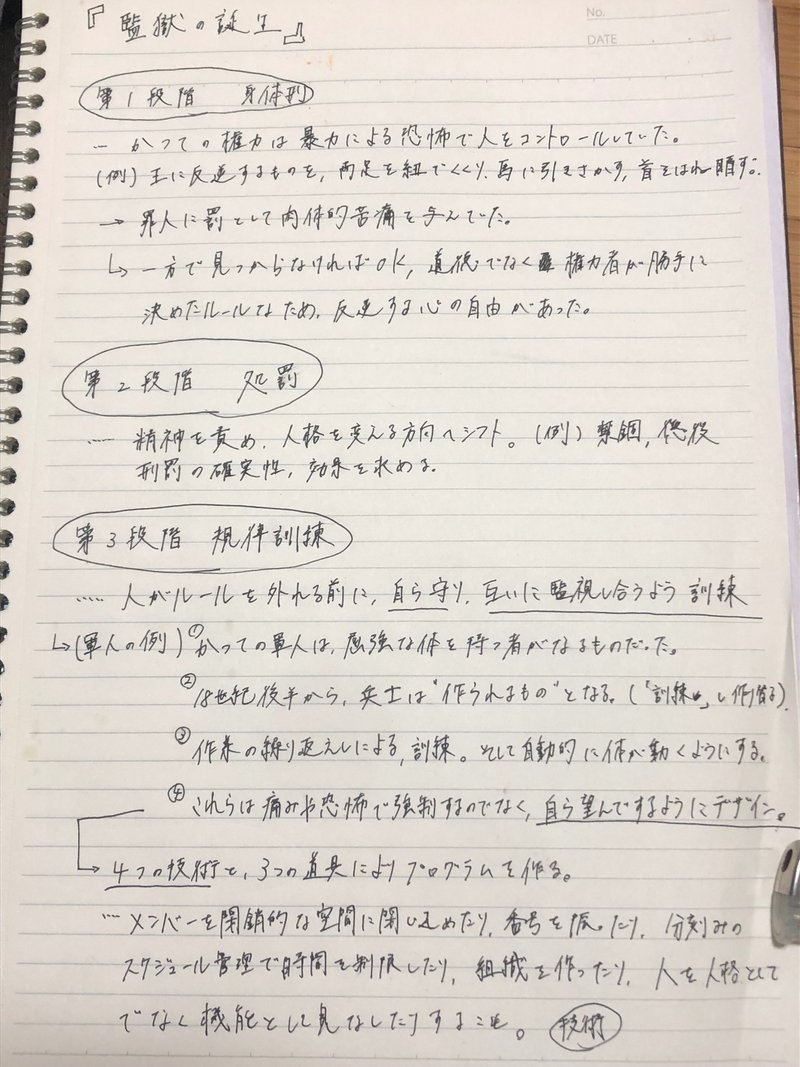 No.
DATE
『監獄の誕生』
第1段階 身体刑
… かつての権力は暴力による恐怖で人をコントロールしていた。
(例) 王に反逆するものを、両足を紐でくくり、馬に引きさかす, 首をはね晒す。
→ 罪人に罰として肉体的苦痛を与えていた。
↳ 一方で見つからなければOK, 道徳でなく 権力者が勝手に
決めたルールなため、反逆する心の自由があった。
第2段階 処罰
…… 精神を責め、人格を変える方向へシフト。(例) 禁錮, 懲役
刑罰の確実性, 効果を求める。
第3段階 規律訓練
…… 人がルールを外れる前に, 自ら守り, 互いに監視し合うよう 訓練
↳(軍人の例) ①かつての軍人は, 屈強な体を持つ者がなるものだった。
②18世紀後半から, 兵士は"作られるもの"となる。(「訓練」し作り変る)
③作業の繰り返えしによる, 訓練。そして自動的に体が動くようにする。
④これらは痛みや恐怖で強制するのでなく, 自ら望んでするようにデザイン。
→ 4つの技術と, 3つの道具によりプログラムを作る。
… メンバーを閉鎖的な空間に閉じ込めたり, 番号を振ったり, 分刻みの
スケジュール管理で時間を制限したり, 組織を作ったり, 人を人格として
でなく機能として見なしたりすること。 技術